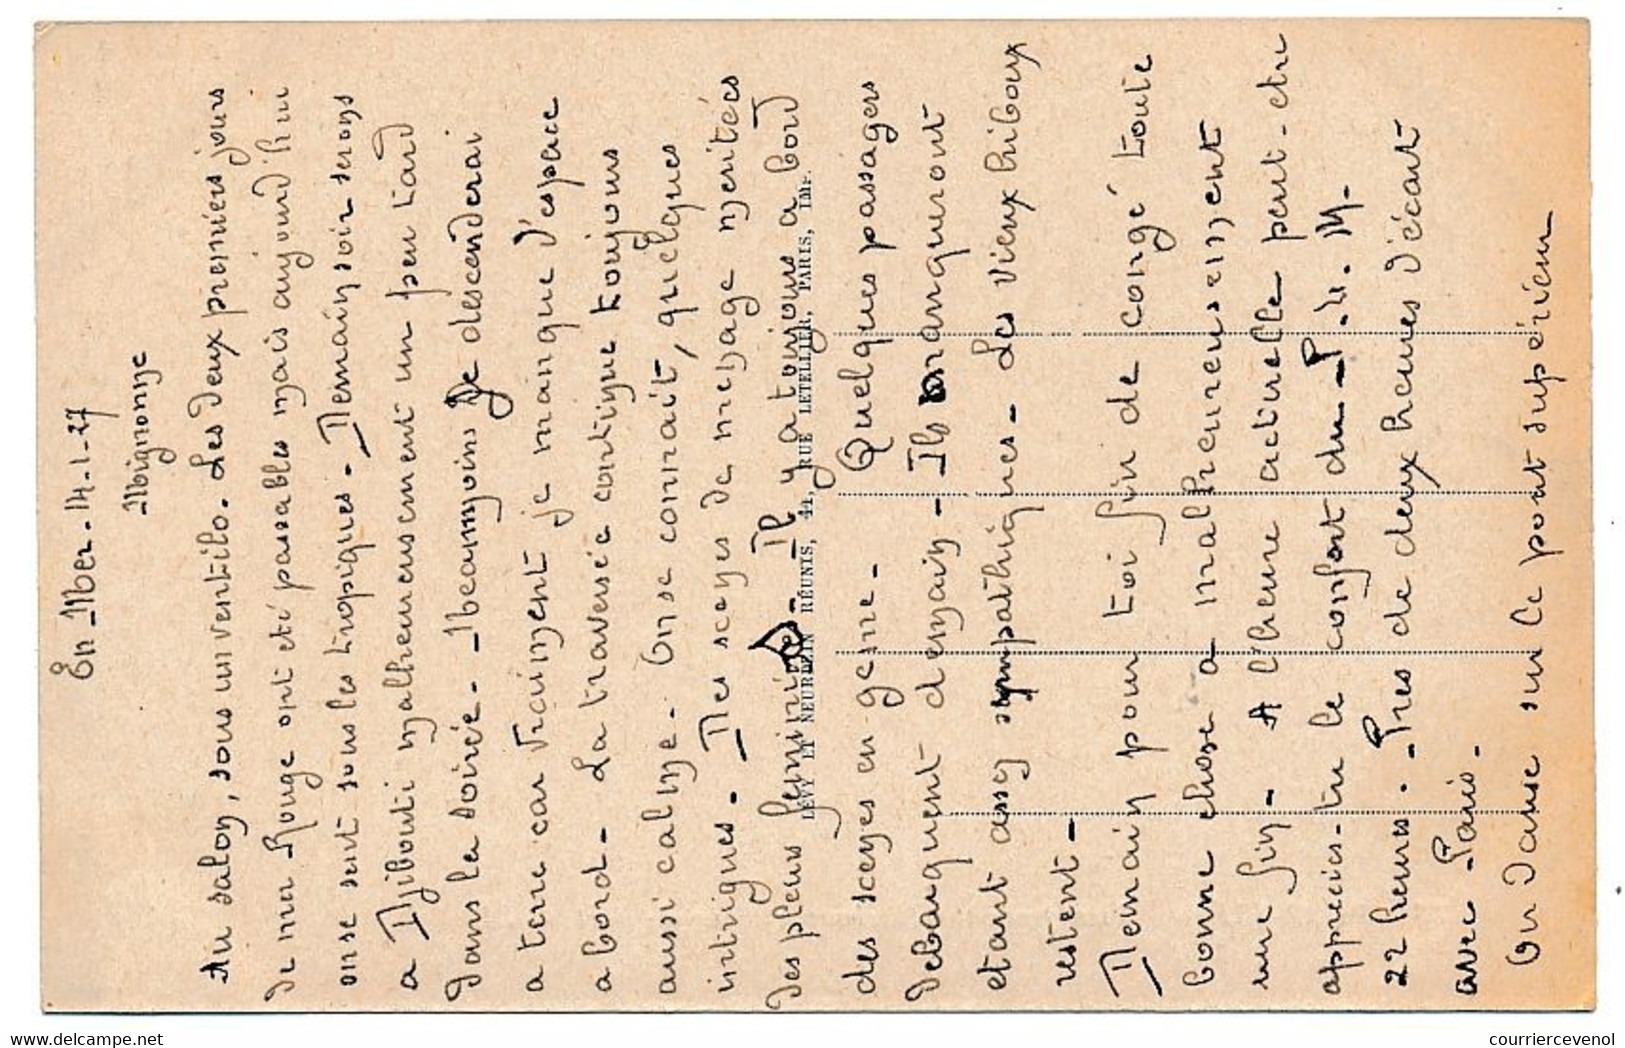 En Mer. 14-1-27
Mignonne
Au salon, sous un ventilo. Les deux premiers jours
de mer Rouge ont été passables mais aujourd'hui
on se sent sous les tropiques. Demain soir serons
a Djibouti malheureusement un peu tard
dans la soirée. Neanmoins je descenderai
a terre car vraiment je manque d'espace
a bord. La traversée continue toujours
aussi calme. On se connait, quelques
intrigues. Des scenes de menage meritées
des pleurs feminins. Il y a toujours a bord
des scenes en gene. Quelques passagers
debarquent demain. Ils manqueront
etant assez sympathiques. Les vieux hiboux
restent.
Demain pour toi fin de congé toute
bonne chose a malheureusement
une fin. A l'heure actuelle peut-etre
apprecies-tu le confort du P.L.M.
22 heures. Pres de deux heures d'écart
avec Paris.
On danse sur le pont supérieur
LÉVY ET NEURDEIN RÉUNIS, 44, RUE LETELLIER, PARIS, IMP.
www.delcampe.net
courriercevenol